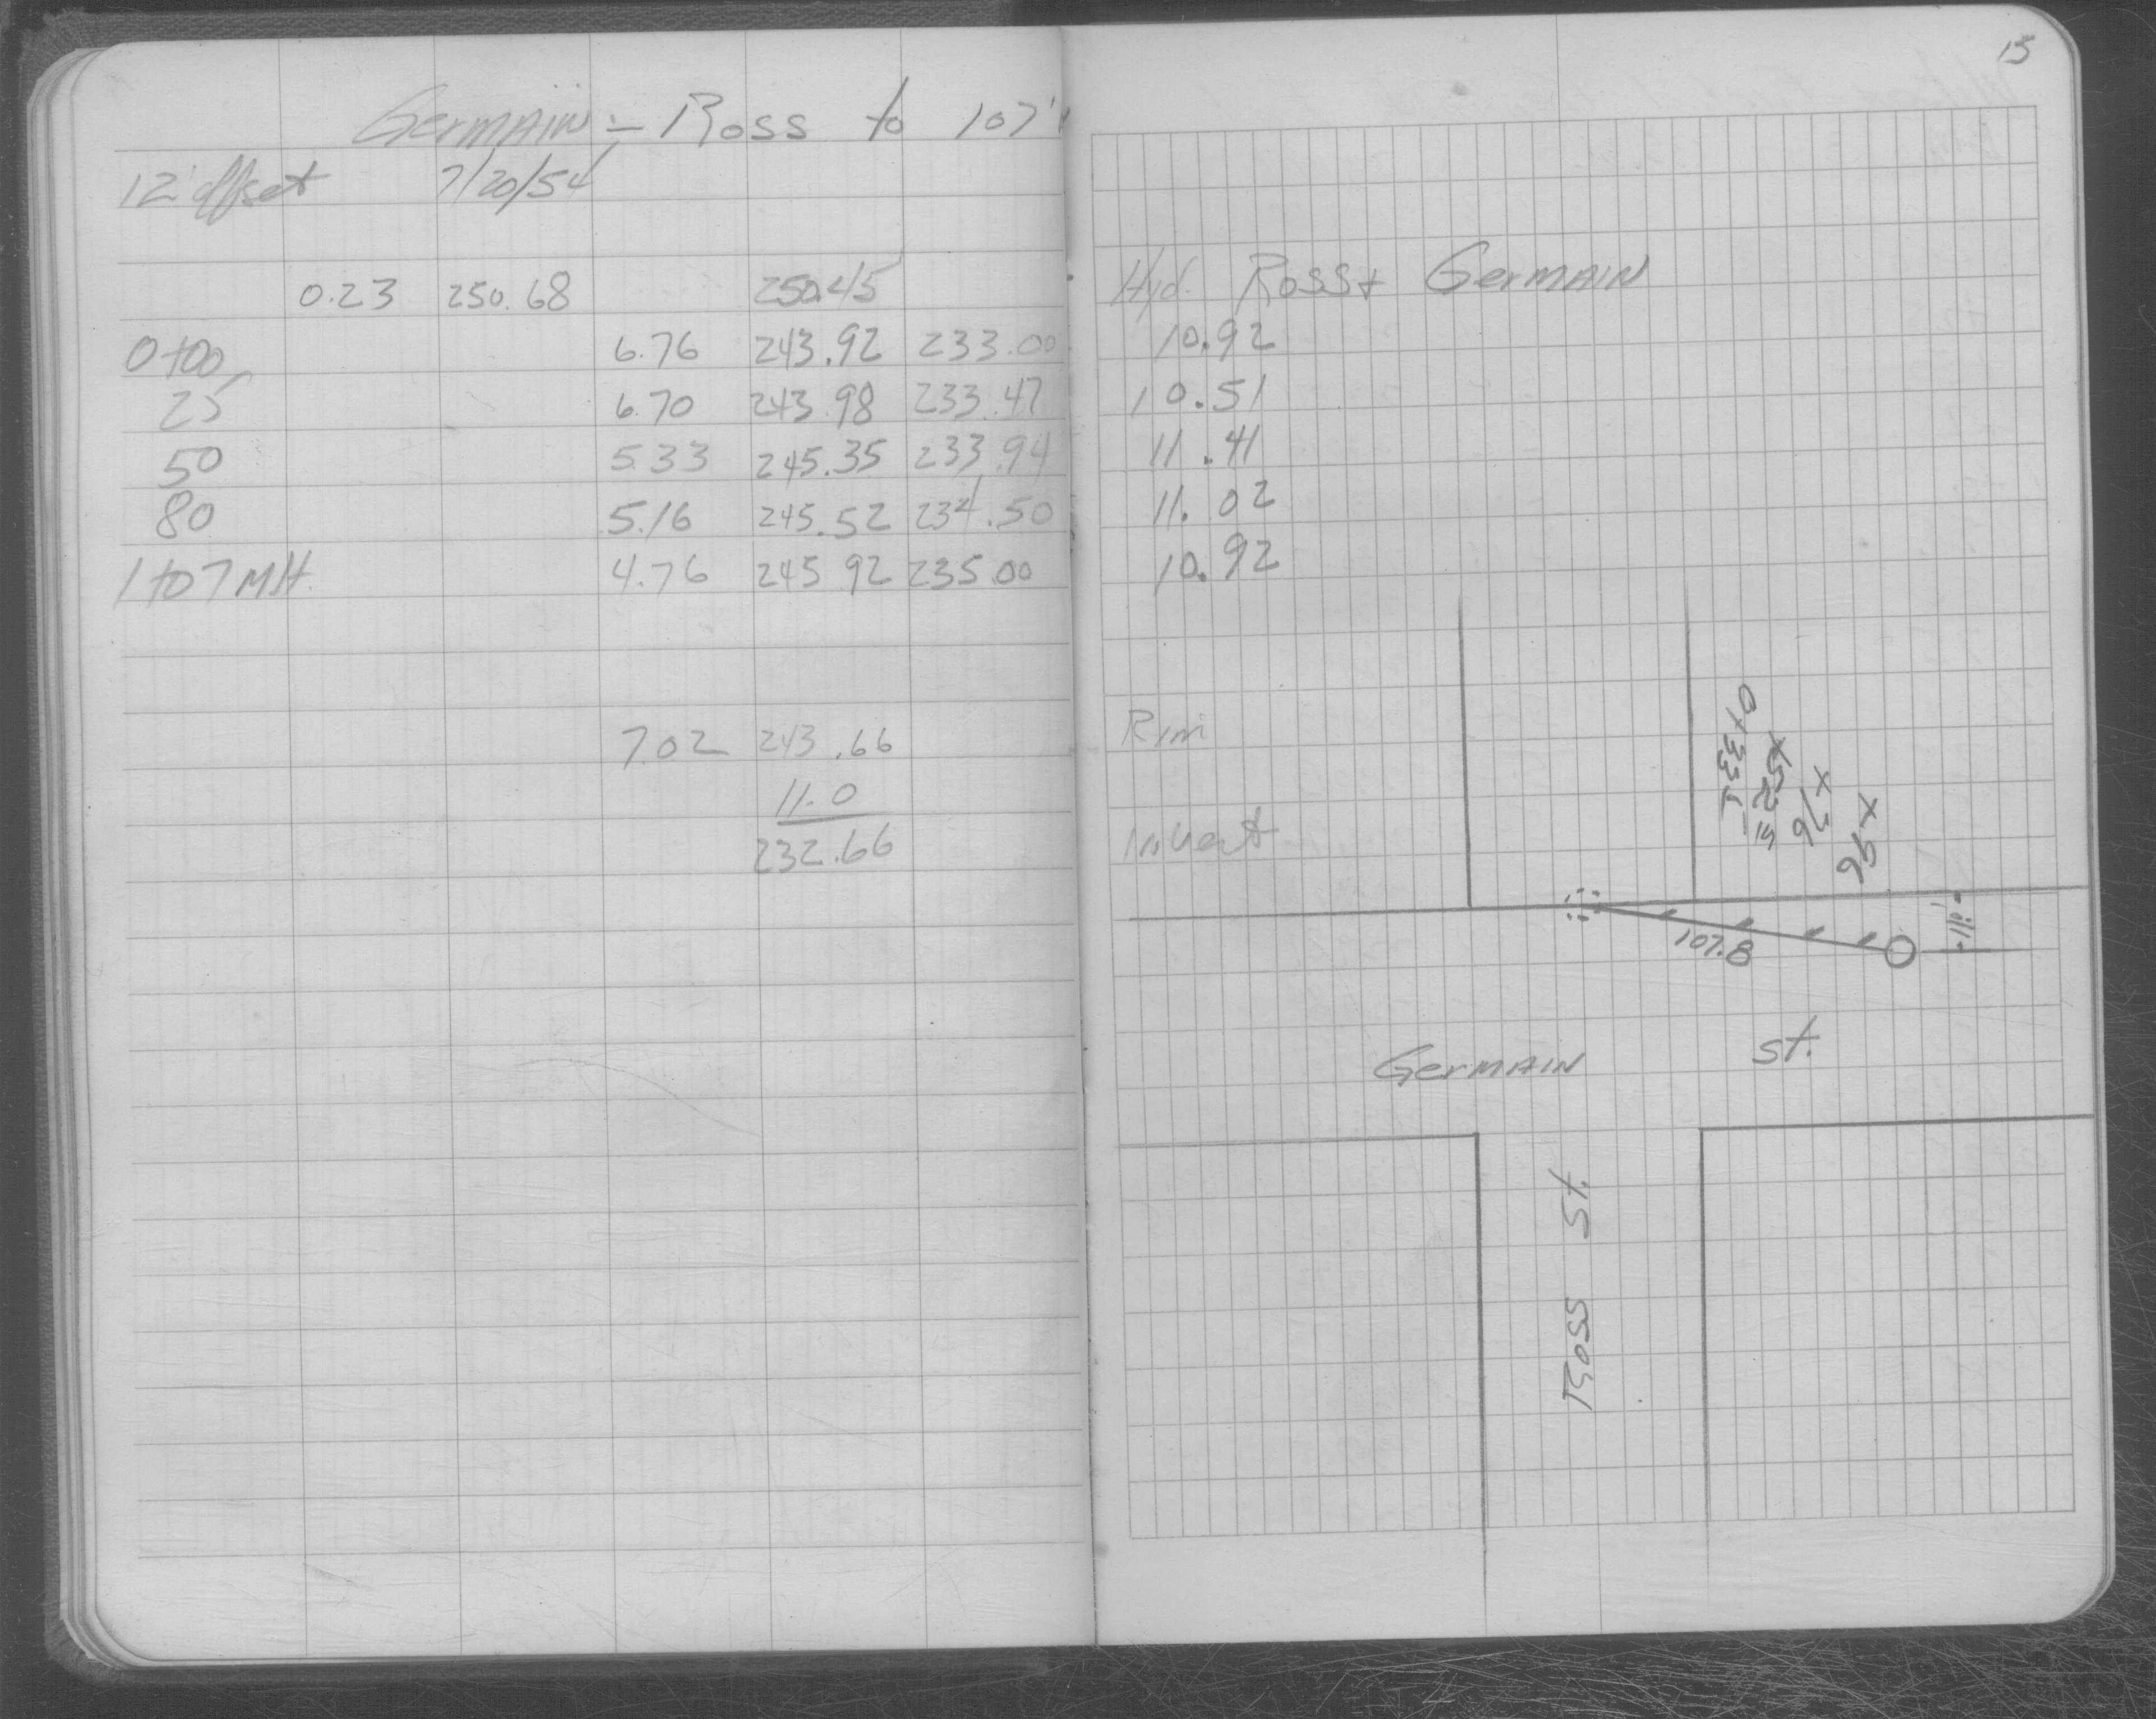 15
Germain - Ross to 107'
12' offset 7/20/54
0.23 250.68 250.45 Hyd. Ross + Germain
0+00 6.76 243.92 233.00 10.92
25 6.70 243.98 233.47 10.51
50 5.33 245.35 233.94 11.41
80 5.16 245.52 234.50 11.02
1+07 MH. 4.76 245.92 235.00 10.92
7.02 243.66 Rim
11.0
232.66 Invert
0+33
+52
+76
+96
107.8
Germain St.
Ross St.